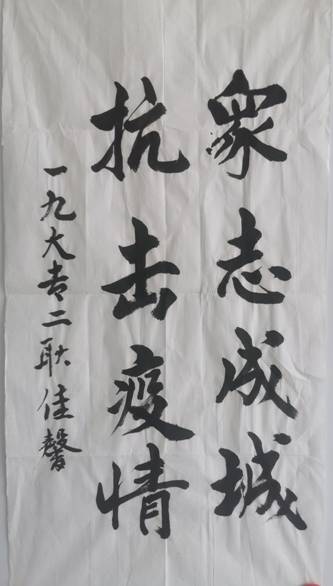 眾志成城
抗击疫情
一九大专二耿佳馨